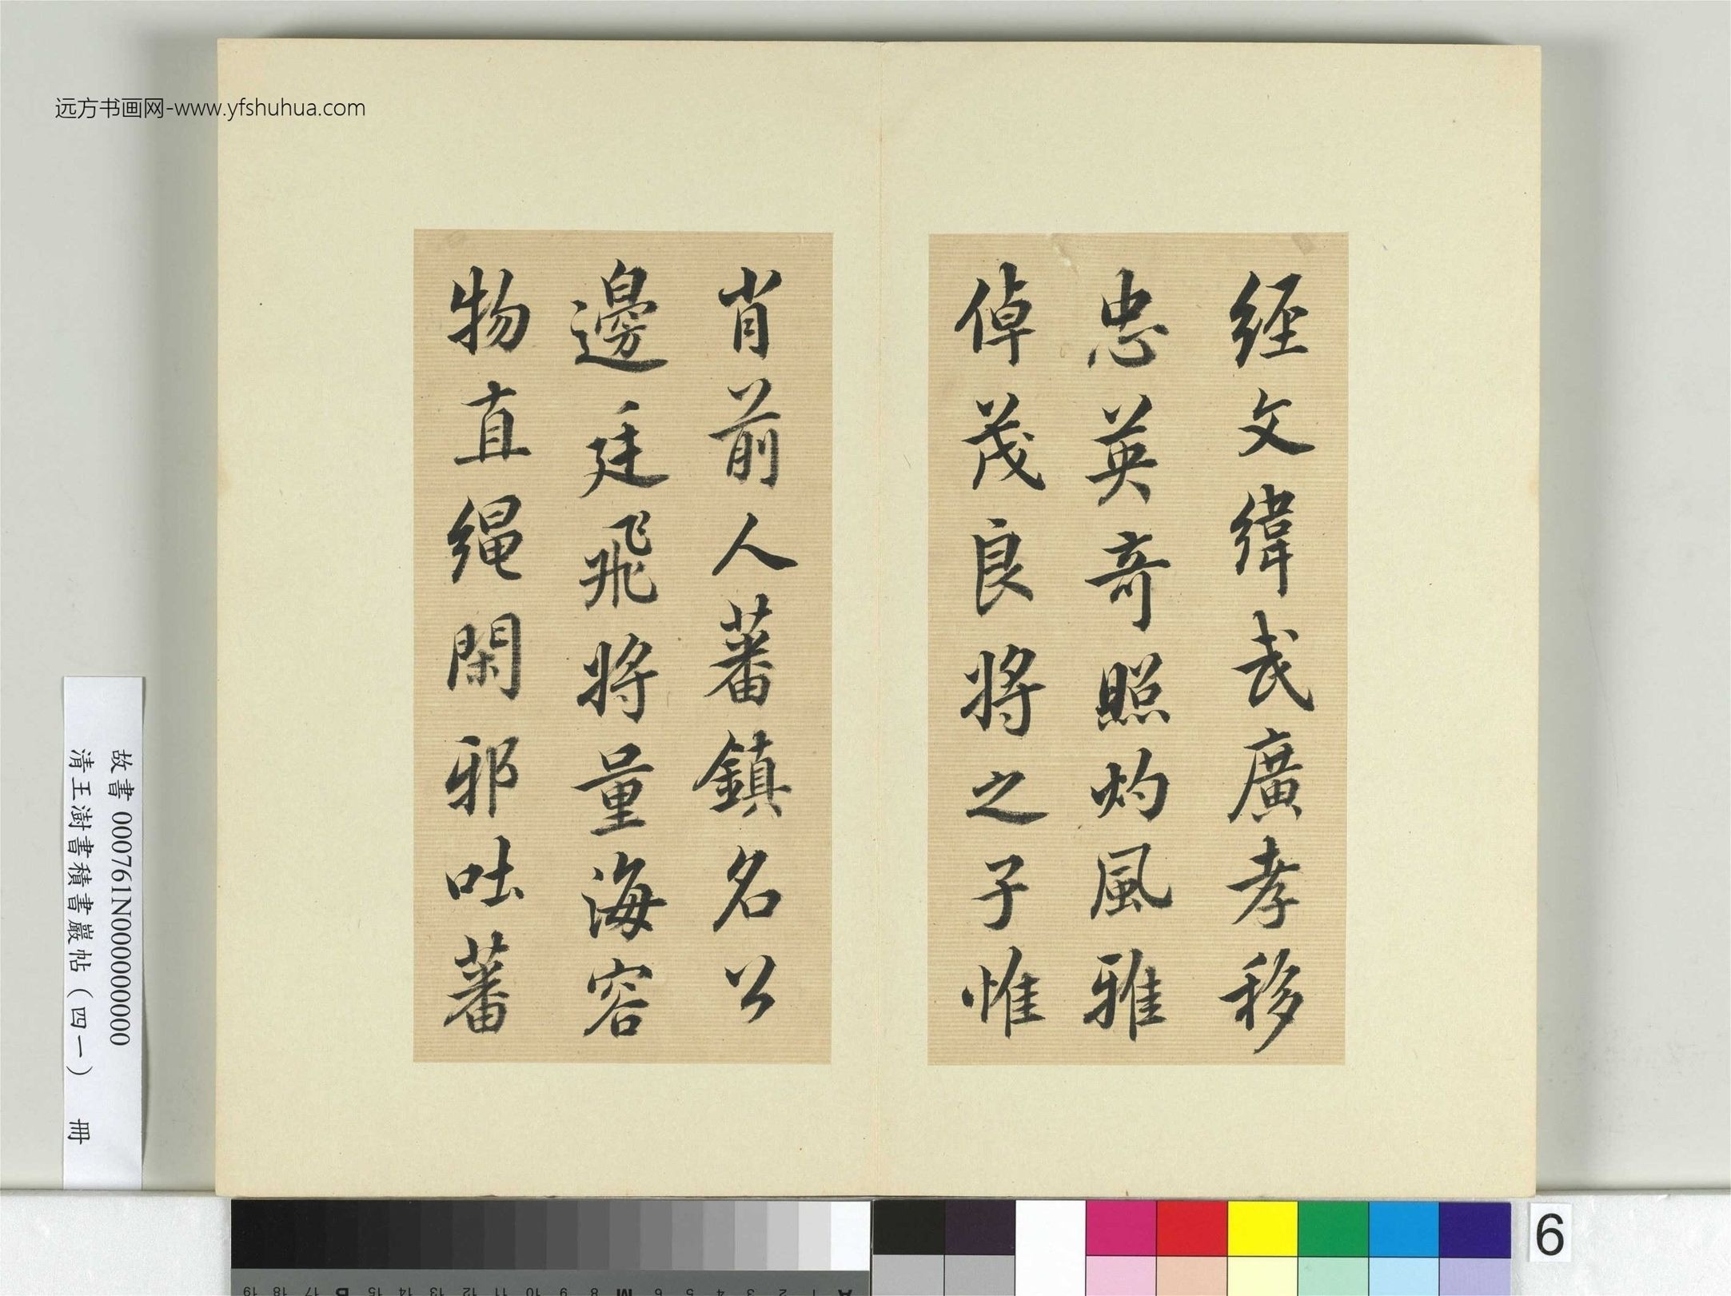 远方书画网-www.yfshuhua.com
经文緯武廣孝移
忠英奇照灼風雅
倬茂良將之子惟
肖前人蕃鎮名公
邊廷飛將量海容
物直绳閑邪吐蕃
故書 000761N000000000
清王澍書積書巖帖(四一) 冊
6